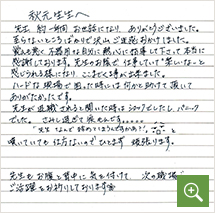 秋元先生へ
先生 約一年間 お世話になり、ありがとうございました。
至らないところばかりで沢山ご迷惑おかけしました。
覚えも悪く不器用な自分に熱心に指導して下って本当に
感謝しております。先生のお陰で仕事していて"楽しいな"と
感じられる様になり、ここまでくる事が出来ました。
ハードな現場で困った時には何かと助けて頂いて
ありがたかったです。
先生が退職されると聞いた時はショックでしたし、パニック
でした。さみし過ぎて涙もんです。
"先生なんで辞めてまうんですかあ?"と
嘆いていても仕方ないのでひとまず頑張ります。
先生もお身体と背中に気を付けて、次の職場で
ご活躍をお祈りしております